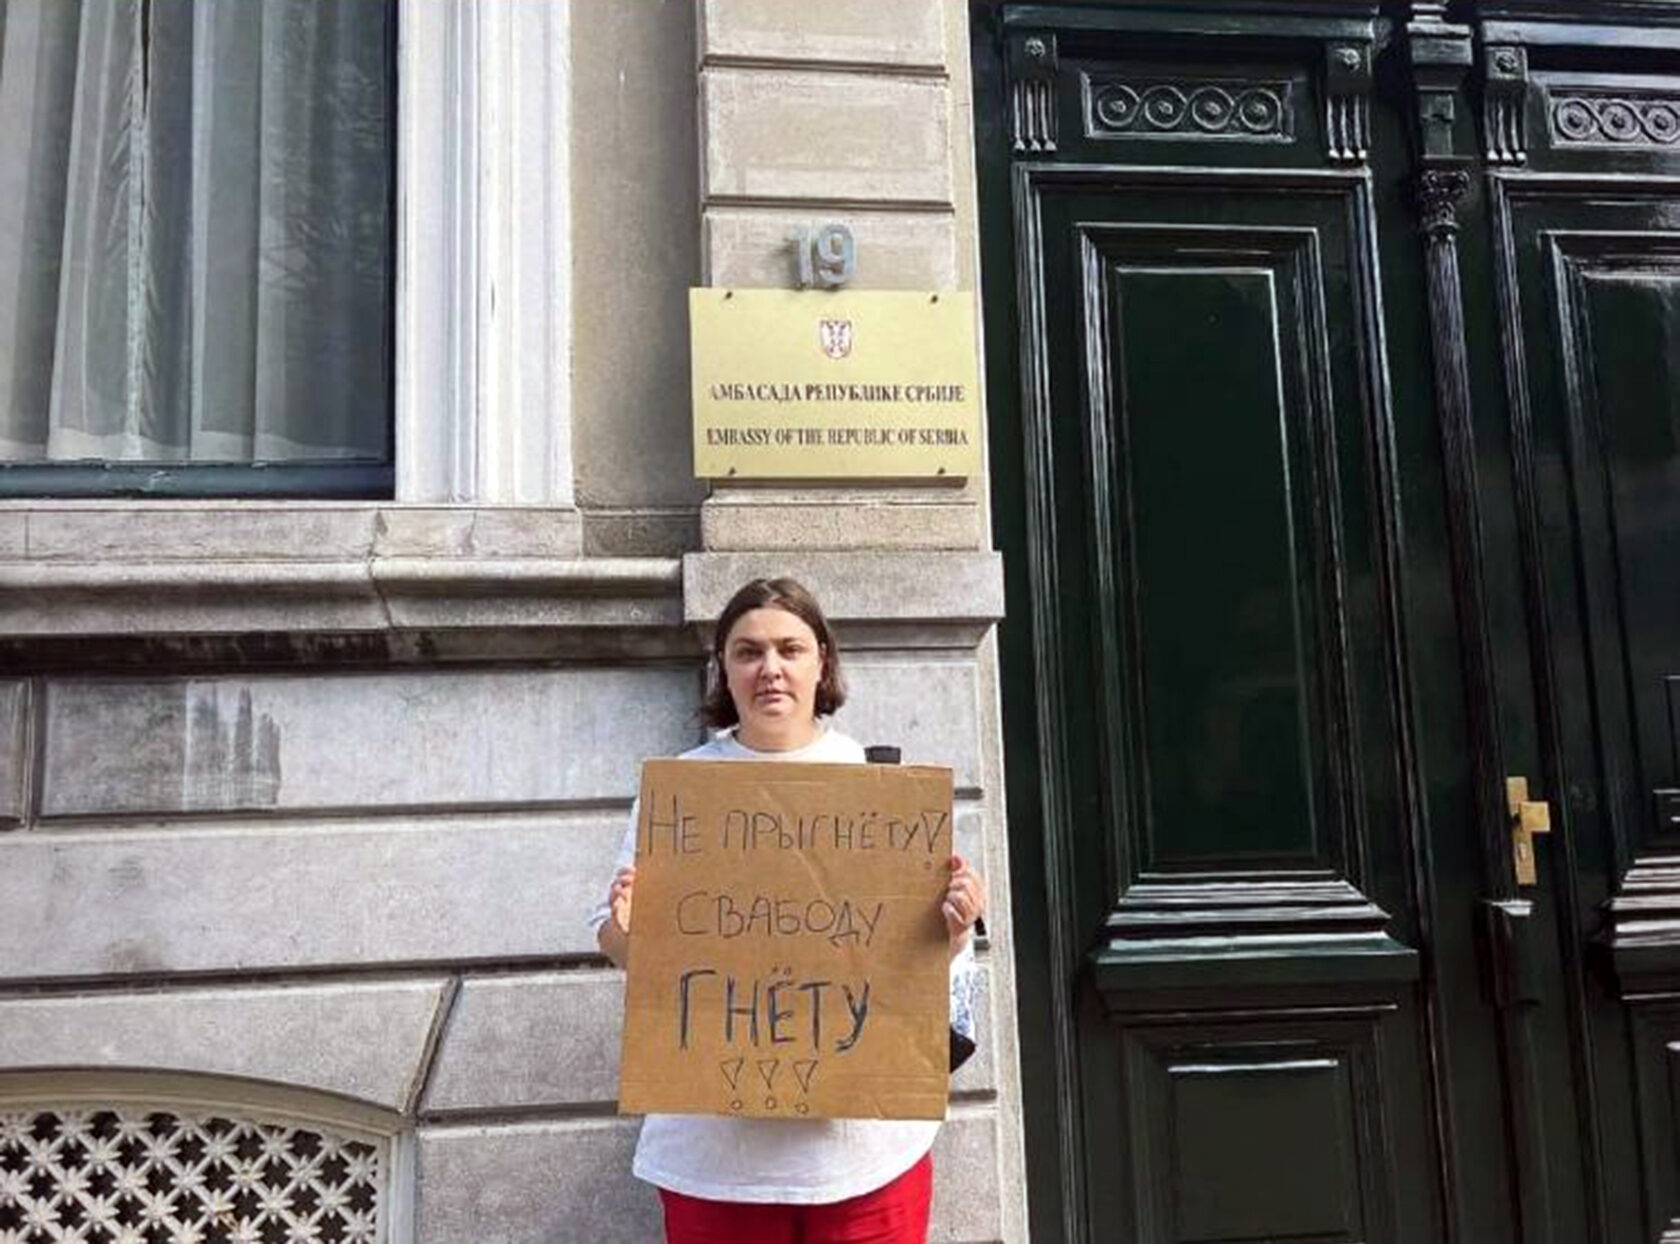 19
АМБАСАДА РЕПУБЛИКЕ СРБИЈЕ
EMBASSY OF THE REPUBLIC OF SERBIA
НЕ ПРЫГНЁТУ!
СВАБОДУ
ГНЁТУ
!!!